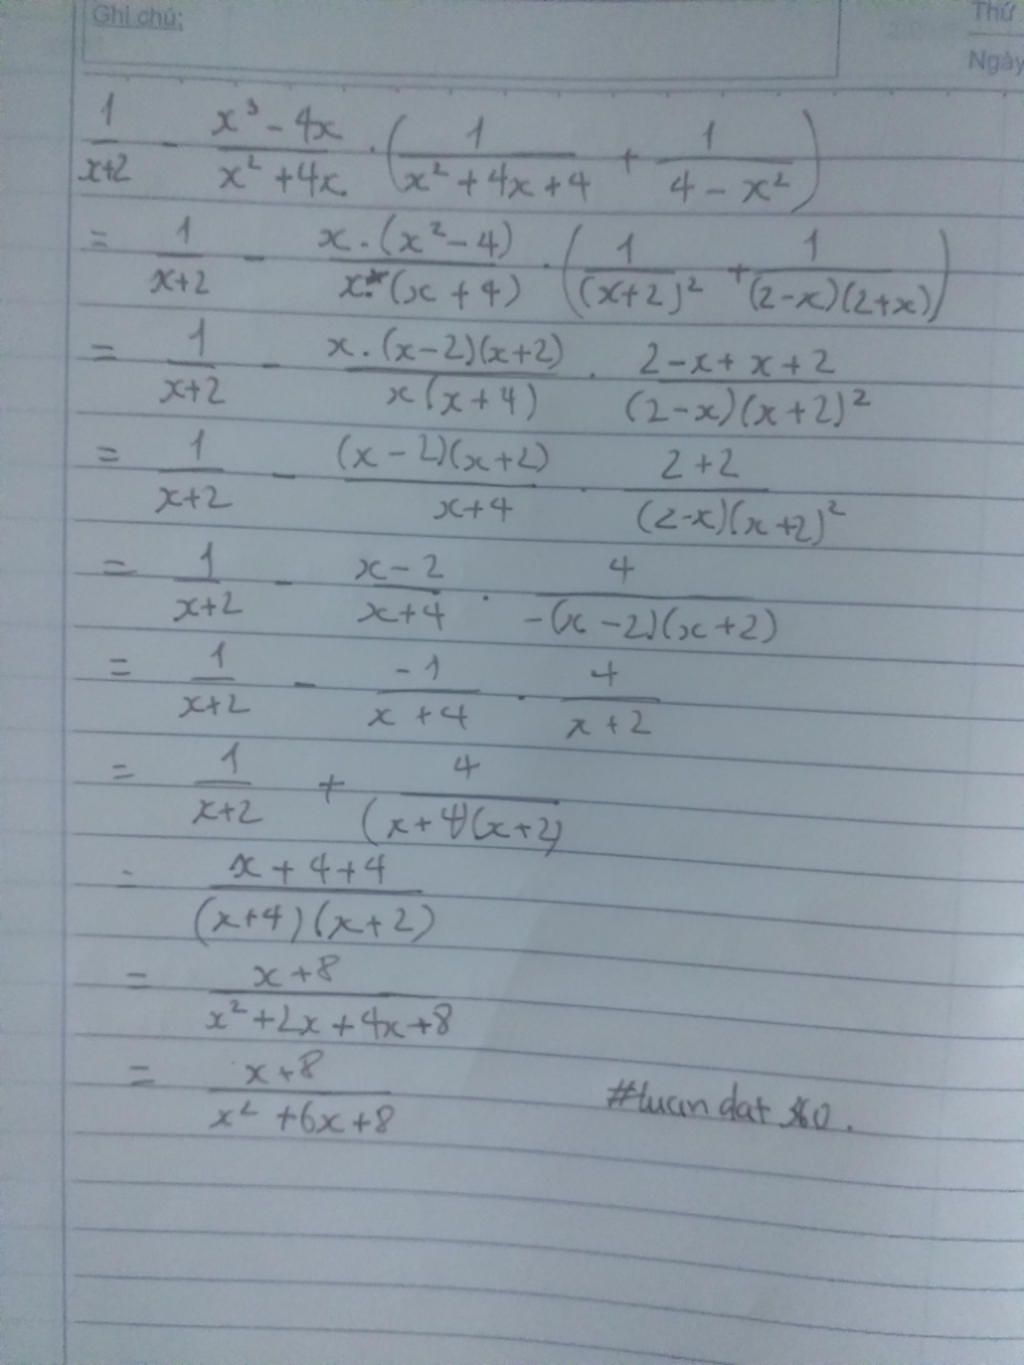 Ghi chú:
Thứ
Ngày
1/(x+2) - (x³ - 4x)/(x² + 4x) . (1/(x² + 4x + 4) + 1/(4 - x²))
= 1/(x+2) - x.(x² - 4)/x.(x + 4) . (1/(x+2)² + 1/(2-x)(2+x))
= 1/(x+2) - x.(x-2)(x+2)/x(x+4) . (2-x+x+2)/(2-x)(x+2)²
= 1/(x+2) - (x-2)(x+2)/(x+4) . (2+2)/(2-x)(x+2)²
= 1/(x+2) - (x-2)/(x+4) . 4/-(x-2)(x+2)
= 1/(x+2) - -1/(x+4) . 4/(x+2)
= 1/(x+2) + 4/(x+4)(x+2)
= (x+4+4)/(x+4)(x+2)
= (x+8)/(x²+2x+4x+8)
= (x+8)/(x²+6x+8)